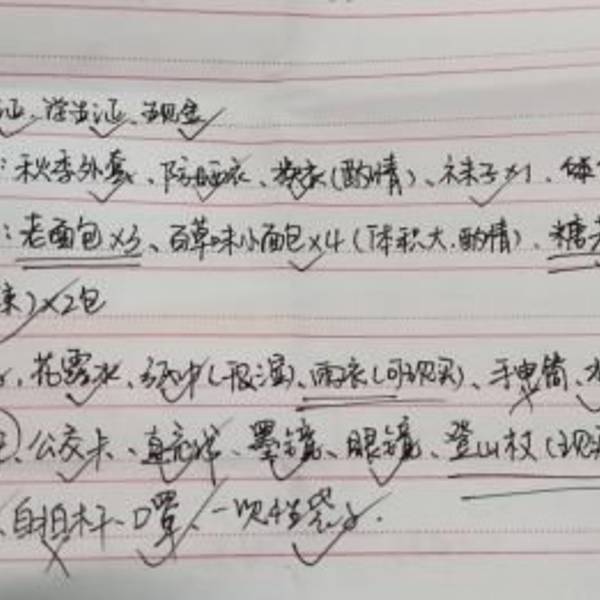 证、学生证、现金
:秋季外套、防晒衣、换衣(酌情)、袜子×1、体
:老面包×3、百草味小面包×4(体积大,酌情)、糖
)×2包
花露水、纸巾(一干一湿)、雨衣(可现买)、手电筒、水
公交卡、充电、墨镜、眼镜、登山杖(现
自拍杆、口罩、一次性袋子.